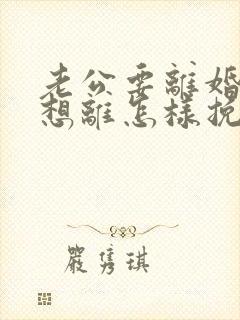 老公要離婚
想離怎樣挽
嚴隽琪